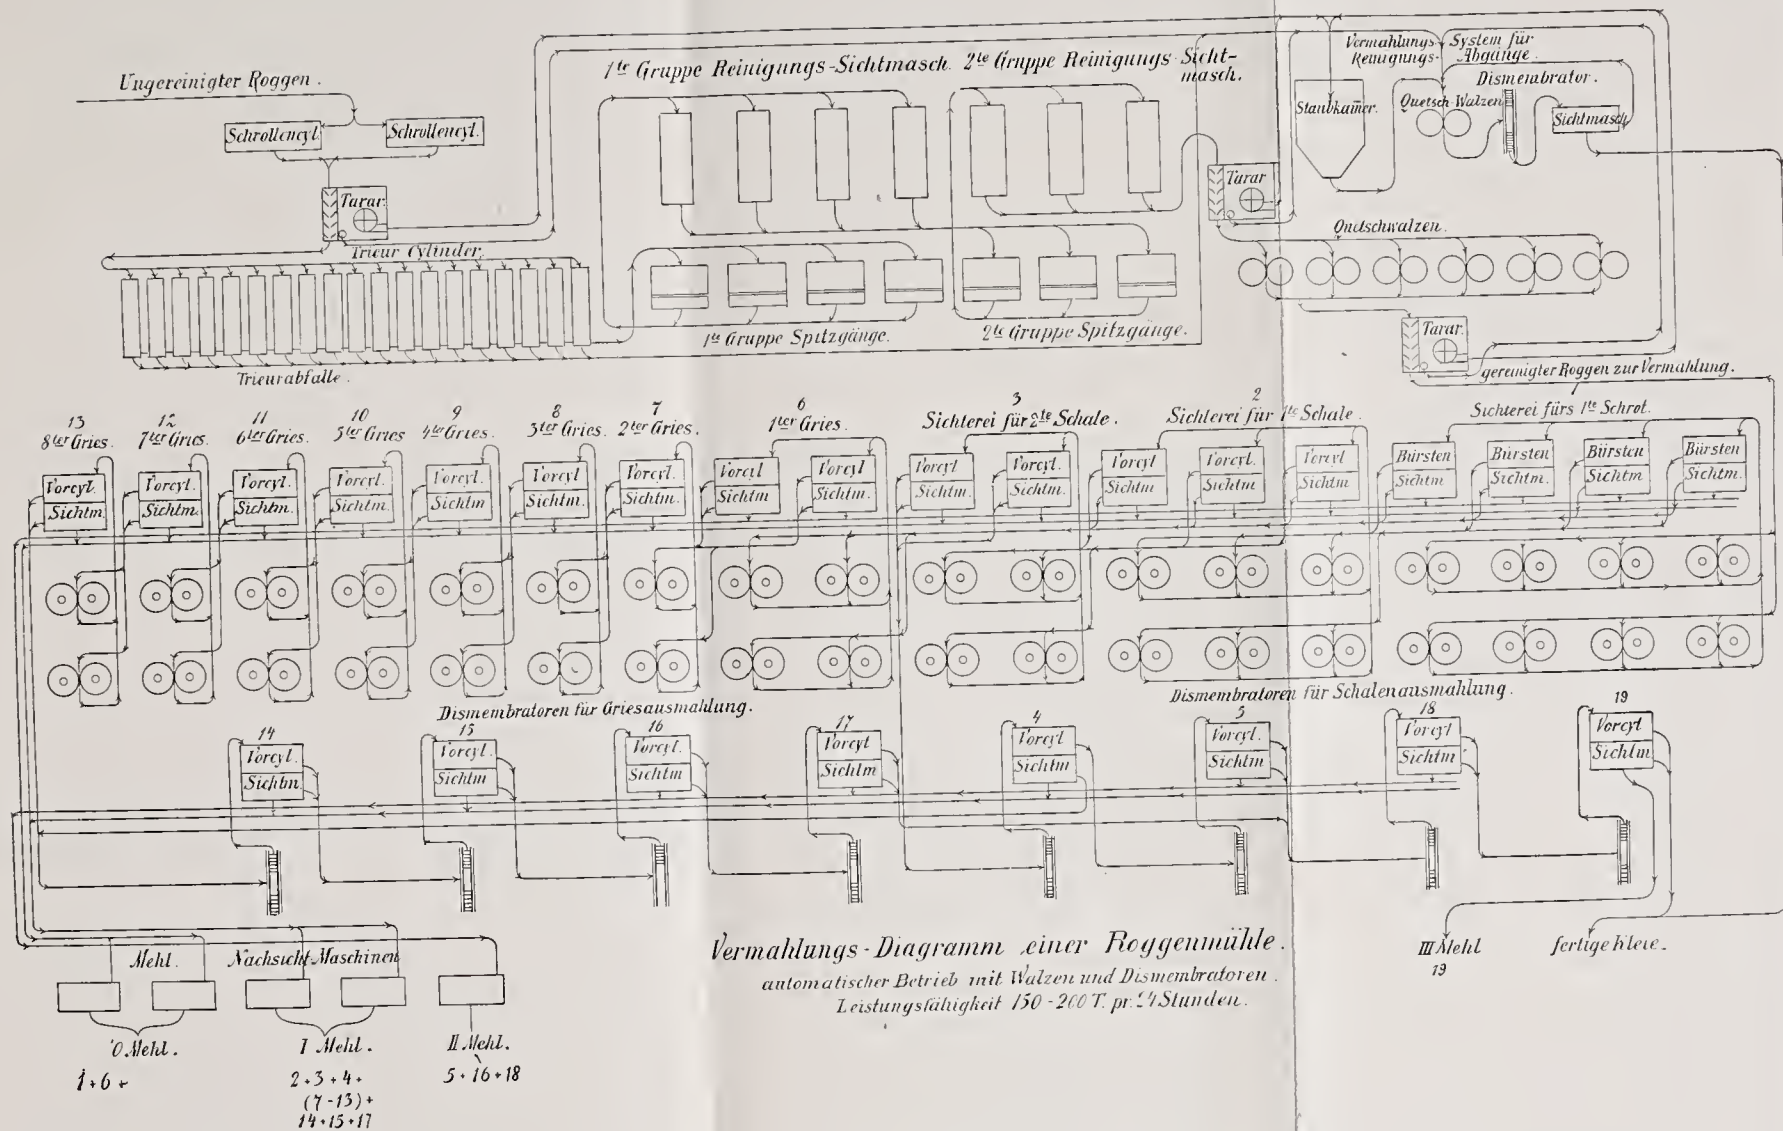 Ungereinigter Roggen.
Schrollencyl.
Schrollencyl.
Tarar.
Trieur Cylinder.
Trieurabfalle.
1te Gruppe Reinigungs-Sichtmasch.
2te Gruppe Reinigungs-Sicht-
masch.
1te Gruppe Spitzgänge.
2te Gruppe Spitzgänge.
Tarar
Staubkam̄er.
Vermahlungs-
Reinigungs-
System für
Abgänge.
Quetsch-Walzen
Dismembrator.
Sichtmasch.
Quetschwalzen.
Tarar.
gereinigter Roggen zur Vermahlung.
13
8ter Gries.
12
7ter Gries.
11
6ter Gries.
10
5ter Gries
9
4ter Gries.
8
3ter Gries.
7
2ter Gries.
6
1ter Gries.
3
Sichterei für 2te Schale.
2
Sichterei für 1te Schale.
1
Sichterei fürs 1te Schrot.
Vorcyl.
Sichtm.
Vorcyl.
Sichtm.
Vorcyl.
Sichtm.
Vorcyl.
Sichtm
Vorcyl.
Sichtm.
Vorcyl.
Sichtm.
Vorcyl.
Sichtm.
Vorcyl
Sichtm
Vorcyl.
Sichtm.
Vorcyl
Sichtm
Vorcyl.
Sichtm.
Vorcyl
Sichtm
Vorcyl.
Sichtm
Vorcyl
Sichtm
Bürsten
Sichtm
Bürsten
Sichtm.
Bürsten
Sichtm
Bürsten
Sichtm.
Dismembratoren für Griesausmahlung.
Dismembratoren für Schalenausmahlung.
14
Vorcyl.
Sichtm.
15
Vorcyl.
Sichtm
16
Vorcyl.
Sichtm
17
Vorcyl
Sichtm
4
Vorcyl
Sichtm
5
Vorcyl.
Sichtm
18
Vorcyl
Sichtm
19
Vorcyl
Sichtm.
Mehl. Nachsicht-Maschinen
III Mehl
19
fertige Kleie.
Vermahlungs-Diagramm einer Roggenmühle.
automatischer Betrieb mit Walzen und Dismembratoren.
Leistungsfähigkeit 150-200 T. pr. 24 Stunden.
0. Mehl.
1+6+
I Mehl.
2+3+4+
(7-13)+
14+15+17
II Mehl.
5+16+18